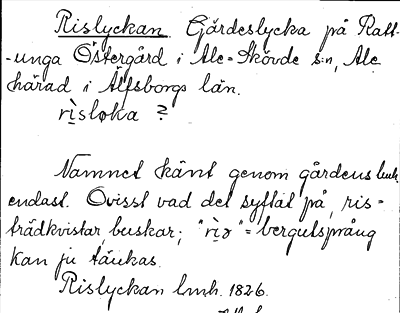 Rislyckan. Gärdeslycka på Ratt-
-unga Östergård i Ale-Skövde s:n, Ale
härad i Älfsborgs län.
rìsloka ?
Namnet känt genom gårdens lmh.
endast. Ovisst vad det syftat på, ris=
trädkvistar, buskar; "rìs" = bergutsprång
kan ju tänkas.
Rislyckan lmh. 1826.